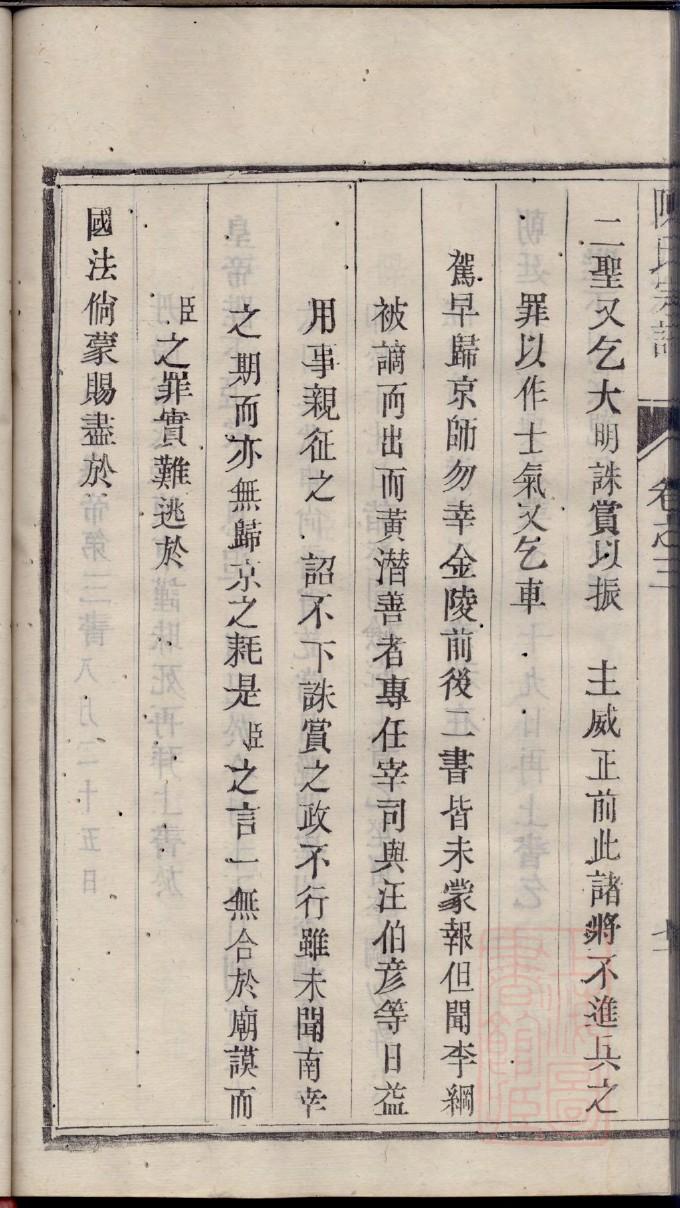 陳氏宗譜
卷之三
二聖又乞大明誅賞以振　主威正前此諸將不進兵之
罪以作士氣又乞車
駕早歸京師勿幸金陵前後二書皆未蒙報但聞李綱
被謫而出而黃潛善者專任宰司與汪伯彥等日益
用事親征之　詔不下誅賞之政不行雖未聞南幸
之期而亦無歸京之耗是臣之言一無合於廟謨而
臣之罪實難逃於
國法倘蒙賜盡於